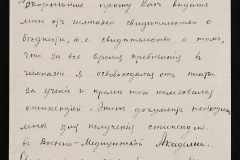 Покорнейше прошу Вас выдать
мне из гимназіи свидѣтельство о
бѣдности, т.е. свидѣтельство о томъ,
что за все время пребыванія въ
гимназіи я освобождался отъ платы
за ученіе и кромѣ того пользовался
стипендіей. Этотъ документъ
мнѣ для полученія стипендіи
въ Военно-Медицинской Академіи.